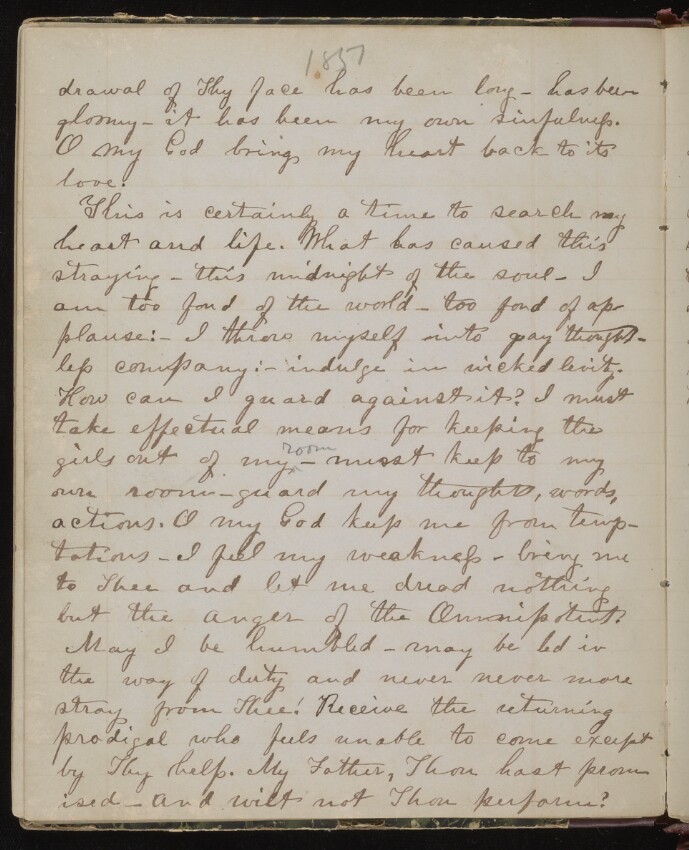 1857
drawal of Thy face has been long - has been
gloomy - it has been my own sinfulness.
O my God bring my heart back to its
love.
This is certainly a time to search my
heart and life. What has caused this
straying - this midnight of the soul - I
am too fond of the world - too fond of ap-
plause:- I throw myself into gay thought-
less company:- indulge in wicked levity.
How can I guard against it? I must
take effectual means for keeping the
room
girls out of my - must keep to my
own room - guard my thoughts, words,
actions. O my God keep me from temp-
tations - I feel my weakness - bring me
to Thee and let me dread nothing
but the anger of the Omnipotent.
May I be humbled - may be led in
the way of duty and never never more
stray from Thee! Receive the returning
prodigal who feels unable to come except
by Thy help. My Father, Thou hast prom
ised - and wilt not Thou perform?